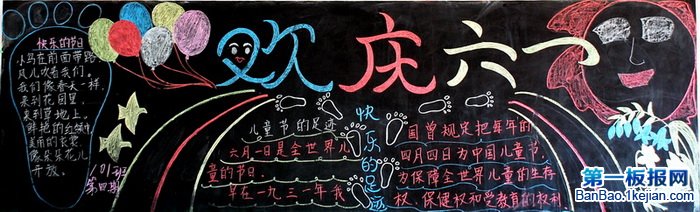 欢庆六一
快乐的节日
小鸟在前面带路
风儿吹着我们。
我们像春天一样,
来到花园里,
来到草地上。
鲜艳的红领巾
美丽的衣裳,
像朵朵花儿
开放。
101班
第四期
儿童节的足迹
六月一日是全世界儿
童的节日。
早在一九三一年我
快乐的足迹
国曾规定把每年的
四月四日为中国儿童节,
为保障全世界儿童的生存
权、保健权和受教育的权利
第一板报网
BanBao.1kejian.com